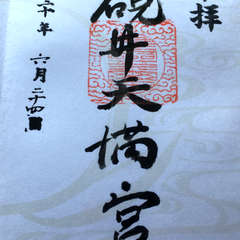 拝
硯井天満宮
十年
六月二十四日